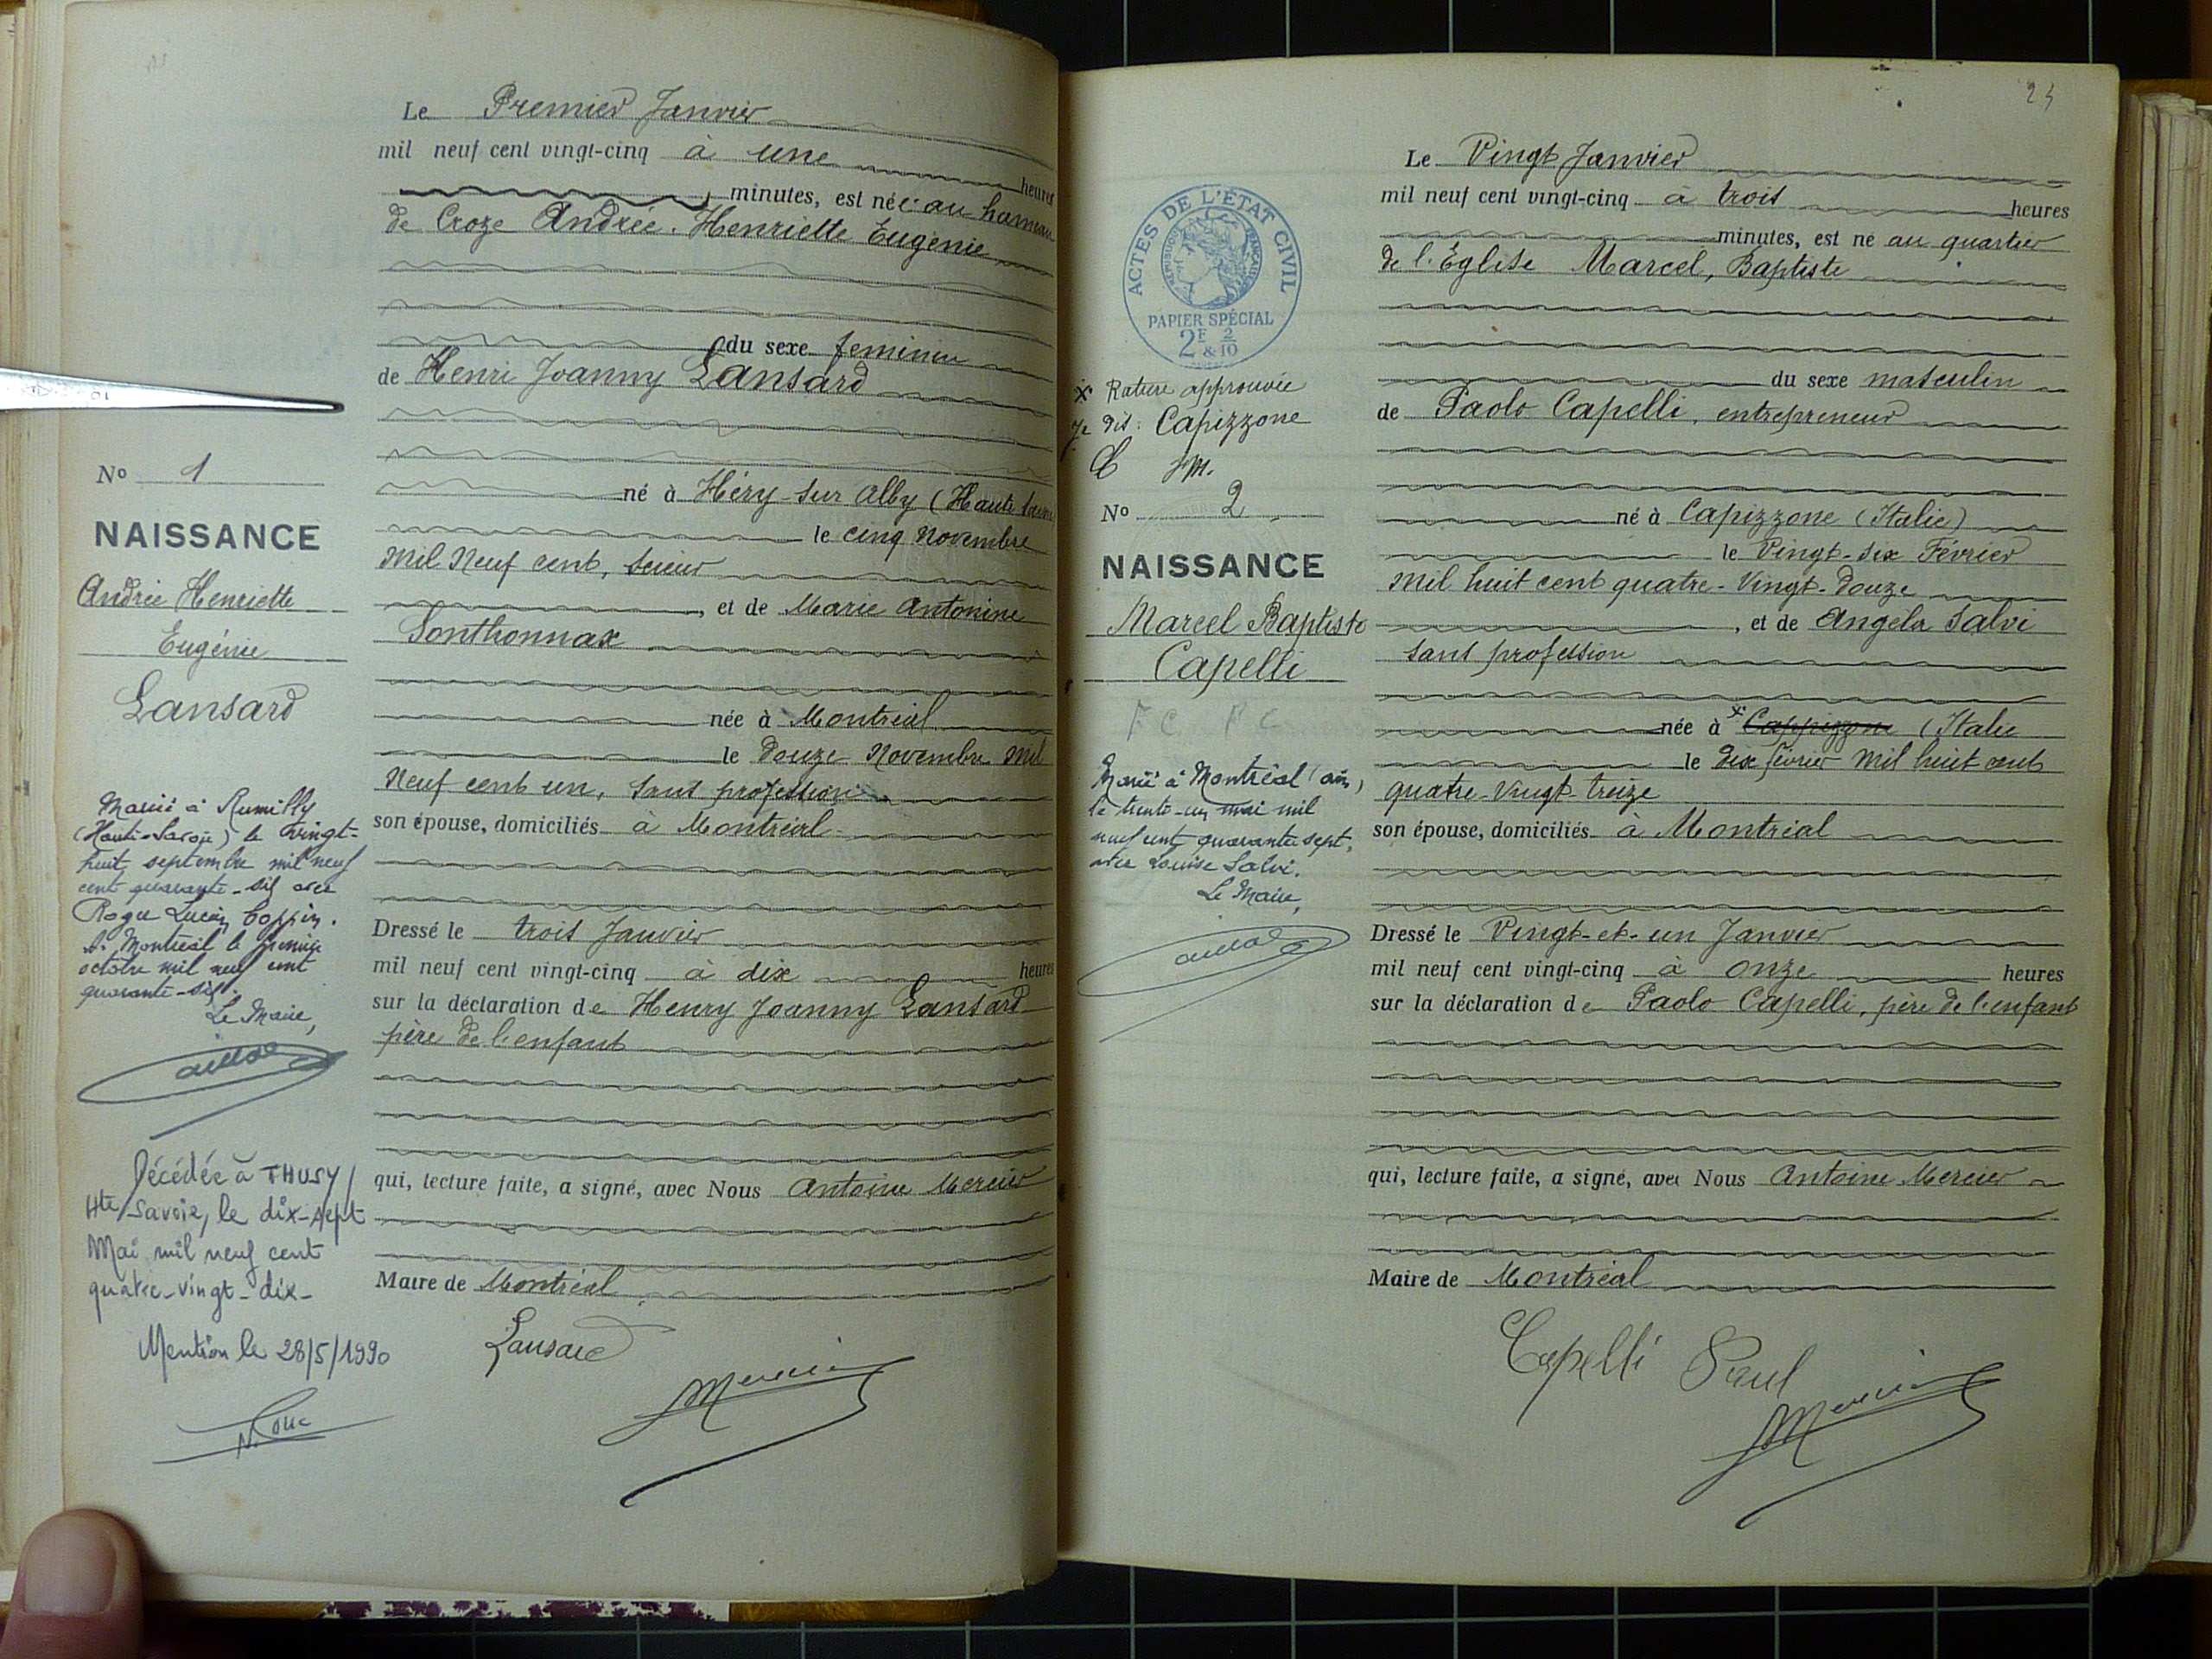 Le Premier Janvier
mil neuf cent vingt-cinq à une heures
minutes, est née au hameau
de Croze Andrée. Henriette Eugénie
du sexe feminin
de Henri Joanny Lansard
né à Héry-sur Alby (Haute Savoie
le cinq Novembre
Mil Neuf cent, scieur
, et de Marie Antonine
Sonthonnax
née à Montréal
le douze Novembre Mil
Neuf cent un, sans profession
son épouse, domiciliés à Montréal
Dressé le trois Janvier
mil neuf cent vingt-cinq à dix heures
sur la déclaration de Henry Joanny Lansard
père de l'enfant
qui, lecture faite, a signé, avec Nous Antoine Mercier
Maire de Montréal
Lansard
Mercier
No 1
NAISSANCE
Andrée Henriette
Eugénie
Lansard
Mariée à Rumilly
(Haute-Savoie) le vingt-
huit septembre mil neuf
cent quarante-six avec
Roger Lucien Coppin.
A Montréal le premier
octobre mil neuf cent
quarante-six.
Le Maire,
Décédée à THUSY/
Hte Savoie, le dix-sept
Mai mil neuf cent
quatre-vingt-dix-
Mention le 28/5/1990
24
Le Vingt Janvier
mil neuf cent vingt-cinq à trois heures
minutes, est né au quartier
de l'Eglise Marcel, Baptiste
du sexe masculin
de Paolo Capelli, entrepreneur
né à Capizzone (Italie)
le Vingt-six Février
Mil huit cent quatre-Vingt-douze
, et de Angela Salvi
sans profession
née à x Cappizzone (Italie
le dix février Mil huit cent
quatre-Vingt-treize
son épouse, domiciliés à Montréal
Dressé le Vingt-et-un Janvier
mil neuf cent vingt-cinq à onze heures
sur la déclaration de Paolo Capelli, père de l'enfant
qui, lecture faite, a signé, avec Nous Antoine Mercier
Maire de Montréal
Capelli Paul
Mercier
ACTES DE L'ÉTAT CIVIL
RÉPUBLIQUE FRANÇAISE
PAPIER SPÉCIAL
2F 2
& 10
x Rature approuvée
Je dis: Capizzone
C M.
No 2
NAISSANCE
Marcel Baptiste
Capelli
Marié à Montréal (ain)
le trente-un mai mil
neuf cent quarante sept,
avec Louise Salvi.
Le Maire,